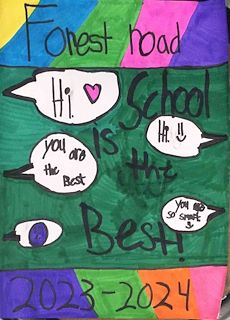 Forest road
Hi.
School
Hi. !!
Is
you are
the Best
the
you are
so smart
Best!
2023-2024